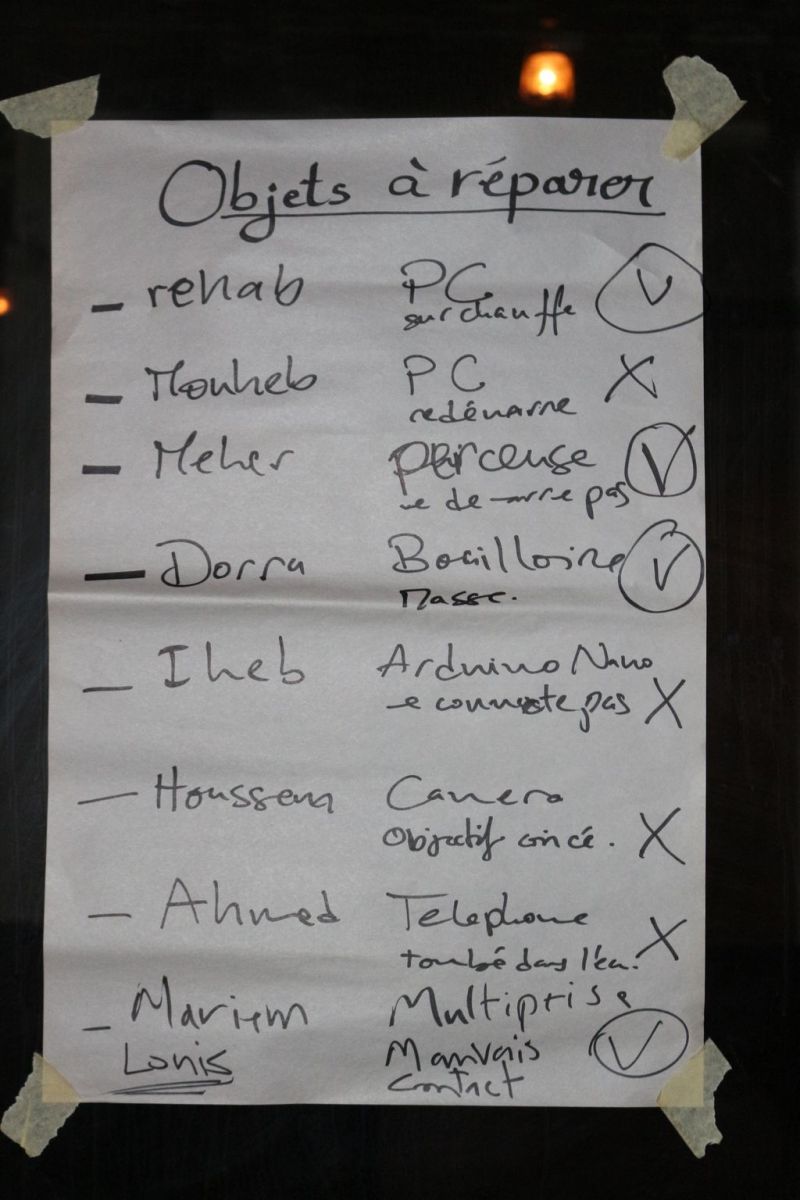 Objets à réparer
- rehab PC V
surchauffe
- Mouheb PC X
redémarre
- Meher perceuse V
ne demarre pas
- Dorra Bouilloire V
Masse.
- Iheb Arduino Nano
connecte pas X
- Houssem Camera
Objectif coincé. X
- Ahmed Telephone
tombé dans l'eau. X
- Mariem Multiprise
Lonis Mauvais V
Contact